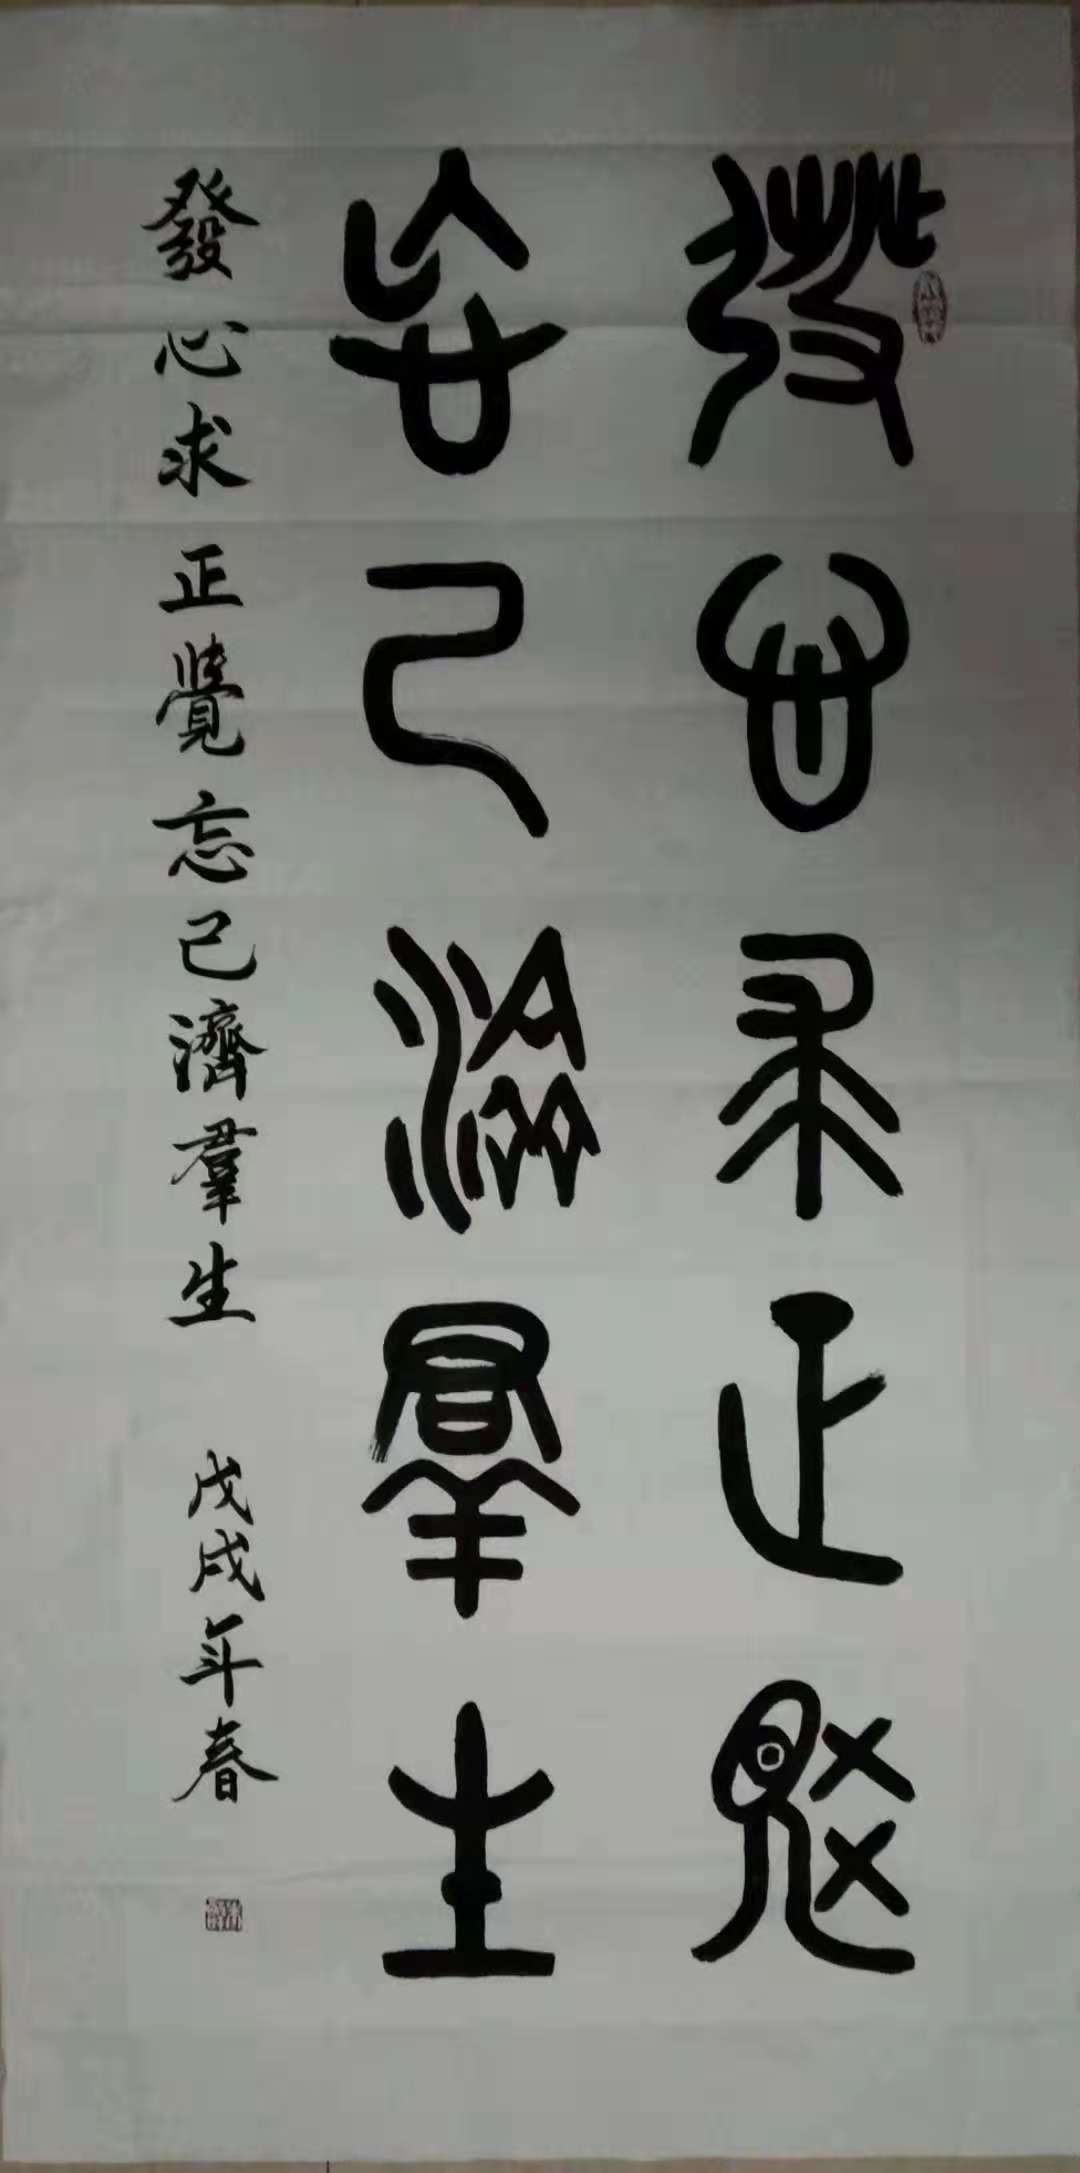 發心求正覺
忘己濟羣生
發心求正覺忘己濟羣生 戊戌年春